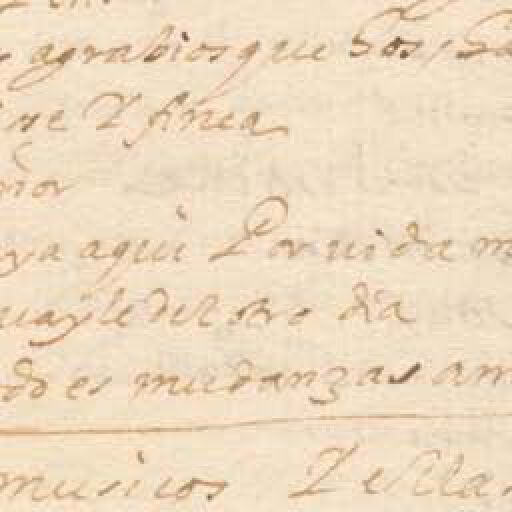 agrabios que Sos, Sa
se y finea
ñor
ya aqui Por vida m
uayle del otro dia
do es mudanzas am
musicos y ella